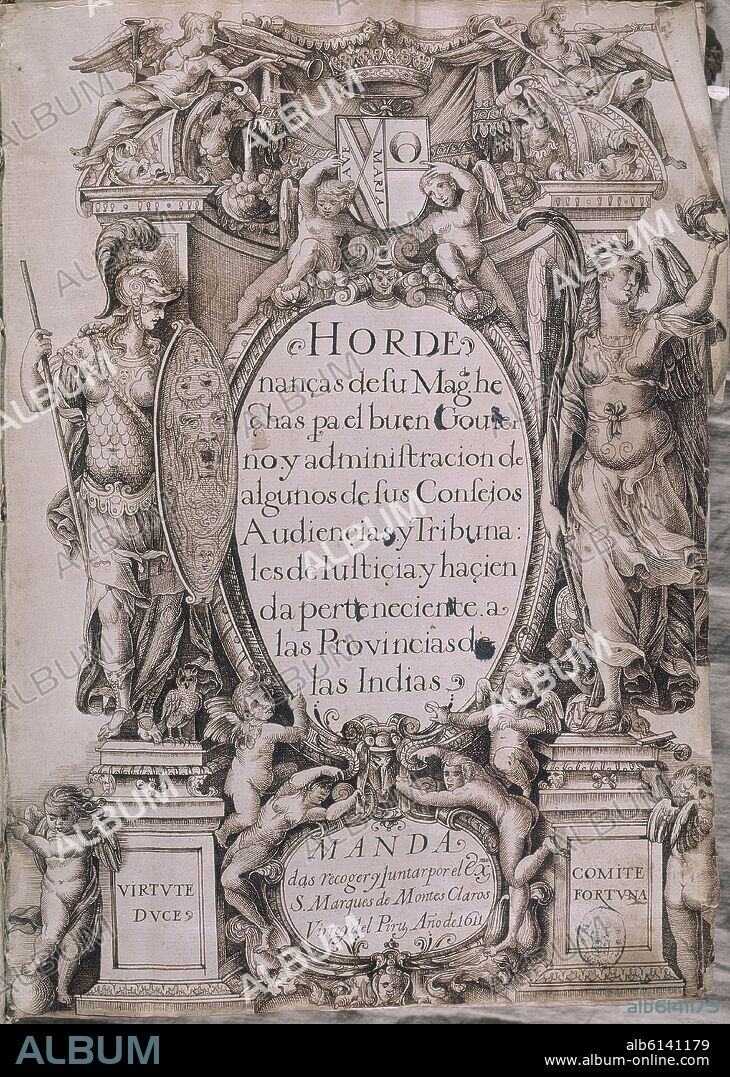 AVE
MARIA
HORDE
nanças de su Mag. he
chas pa el buen Gouier
no y administracion de
algunos de sus Consejos
Audiencias y Tribuna:
les de Iusticia y haçien
da perteneciente. a
las Provincias de
las Indias
MANDA
das recoger y Juntar por el
S. Marques de Montes Claros
Virrey del Piru, Año de 1611
VIRTVTE
DVCE
COMITE
FORTVNA
ALBUM
alb6141179
ALBUM
alb6141179
www.album-online.com